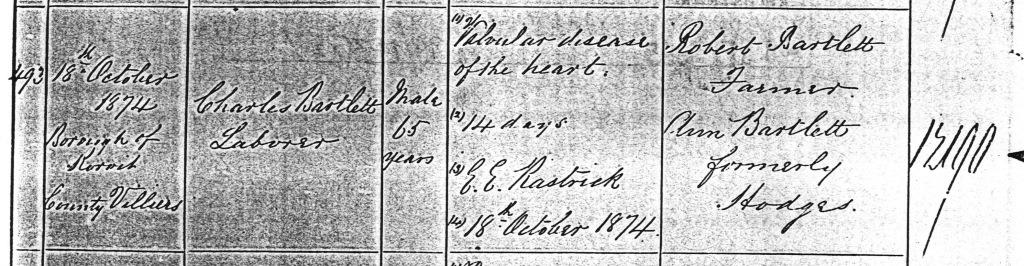 493
18th October
1874
Borough of
County Villiers
Charles Bartlett
Laborer
Male
65
years
(1) Valvular disease
of the heart.
(2) 14 days
(3) E. E. Rastrick
(4) 18th October 1874.
Robert Bartlett
Farmer.
Ann Bartlett
formerly
Hodges.